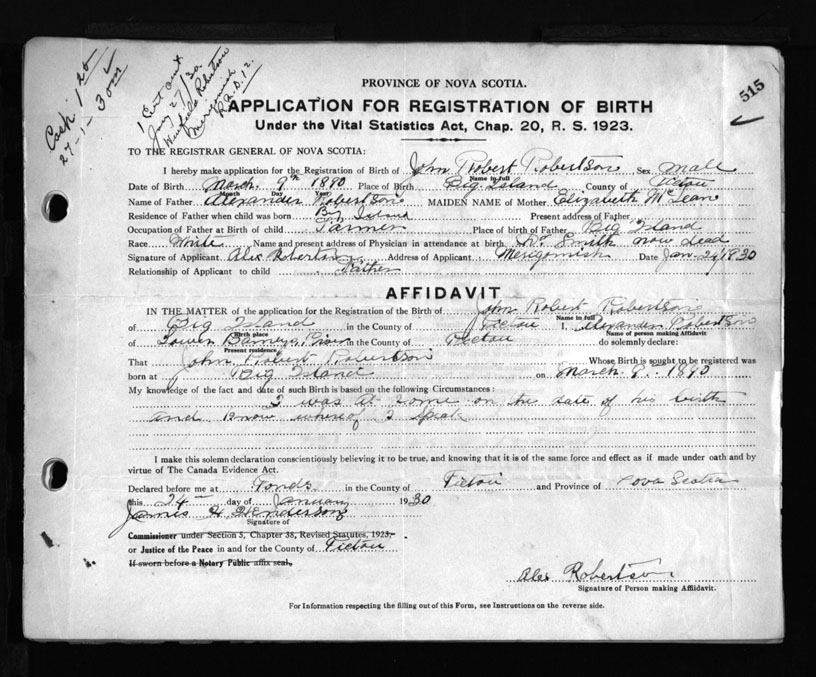 Cash 1 20
27-1-30
1 Cert sent
Jany 27/30
Winfield Robertson
Merigomish
R.R.D. 12.
515
PROVINCE OF NOVA SCOTIA.
APPLICATION FOR REGISTRATION OF BIRTH
Under the Vital Statistics Act, Chap. 20, R. S. 1923.
TO THE REGISTRAR GENERAL OF NOVA SCOTIA:
I hereby make application for the Registration of Birth of John Robert Robertson Sex male
Name in full
Date of Birth March 9th 1890 Place of Birth Big Island County of Pictou
Month Day Year
Name of Father Alexander Robertson MAIDEN NAME of Mother Elizabeth McLean
Residence of Father when child was born Big Island Present address of Father
Occupation of Father at Birth of child Farmer Place of birth of Father Big Island
Race White Name and present address of Physician in attendance at birth Dr. Smith now dead
Signature of Applicant Alex Robertson Address of Applicant Merigomish Date Jan 24/1930
Relationship of Applicant to child Father
AFFIDAVIT
IN THE MATTER of the application for the Registration of the Birth of John Robert Robertson
Name in full
of Big Island in the County of Pictou I, Alexander Robertson
Birth place Name of person making Affidavit
of Lower Barneys River in the County of Pictou do solemnly declare:
Present residence
That John Robert Robertson Whose Birth is sought to be registered was
born at Big Island on March 9. 1890
My knowledge of the fact and date of such Birth is based on the following Circumstances:
I was at home on the date of his birth
and know whereof I speak
I make this solemn declaration conscientiously believing it to be true, and knowing that it is of the same force and effect as if made under oath and by
virtue of The Canada Evidence Act.
Declared before me at Ponds in the County of Pictou and Province of Nova Scotia
this 24 day of January 1930
James H Henderson
Signature of
Commissioner under Section 3, Chapter 38, Revised Statutes, 1923,
or Justice of the Peace in and for the County of Pictou
If sworn before a Notary Public affix seal.
Alex Robertson
Signature of Person making Affidavit.
For Information respecting the filling out of this Form, see Instructions on the reverse side.